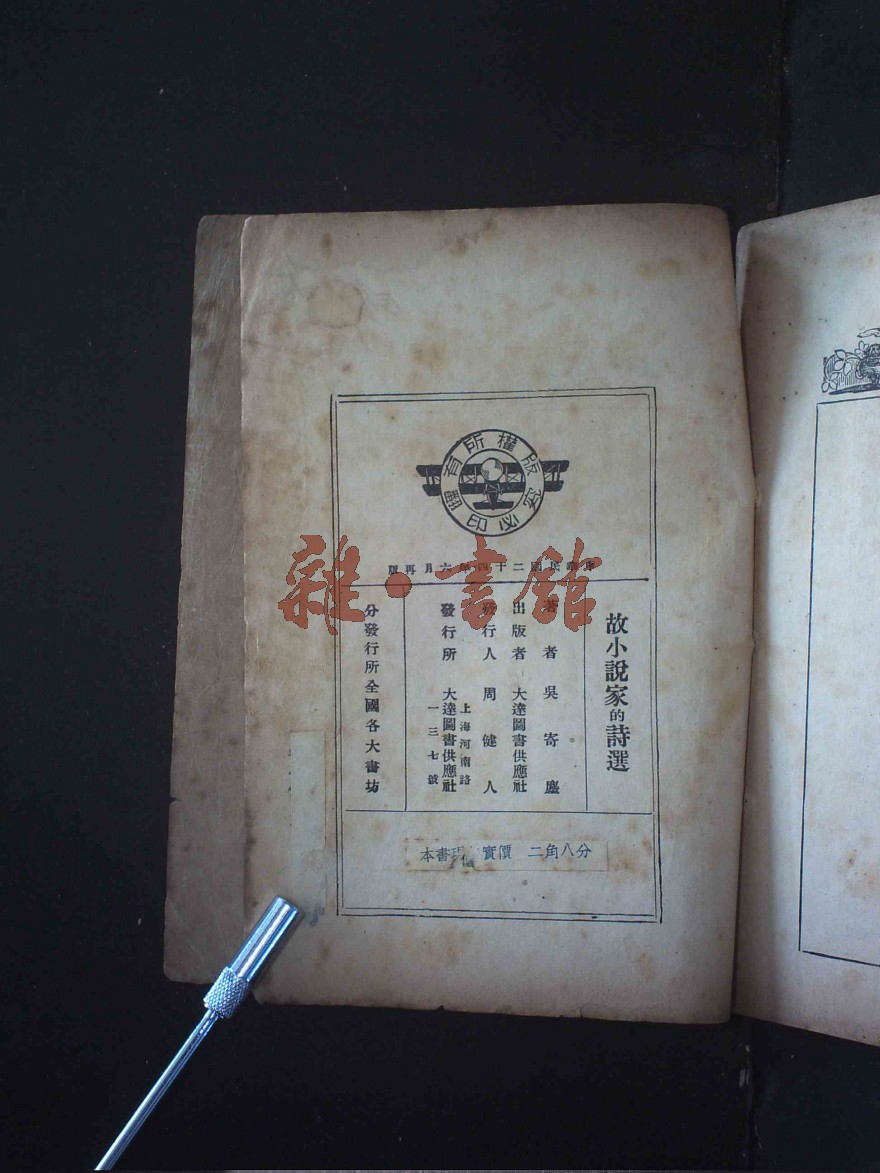 版權所有
翻印必究
中華民國二十四年六月再版
故小說家的詩選
著者 吳寄塵
出版者 大達圖書供應社
發行人 周健人
發行所 大達圖書供應社
上海河南路
一三七號
分發行所全國各大書坊
本書 實價 二角八分
雜·書館